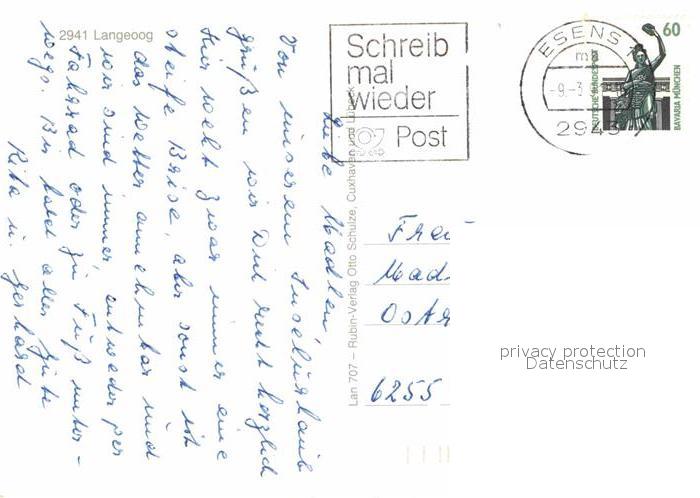 2941 Langeoog
Liebe Madlen
Von unserem Inselurlaub
grüßen wir Dich recht herzlich
Hier weht zwar immer eine
steife Brise, aber sonst ist
das Wetter annehmbar und
wir sind immer, entweder per
Fahrrad oder zu Fuß unter-
wegs. Bis bald alles Gute
Rita u. Gerhard
Lan 707 – Rubin-Verlag Otto Schulze, Cuxhaven und Lübeck
Schreib
mal
wieder
Post
ESENS
-9.-3
2943
60
DEUTSCHE BUNDESPOST
BAVARIA MÜNCHEN
Frau
Mad
Ostr
6255
privacy protection
Datenschutz